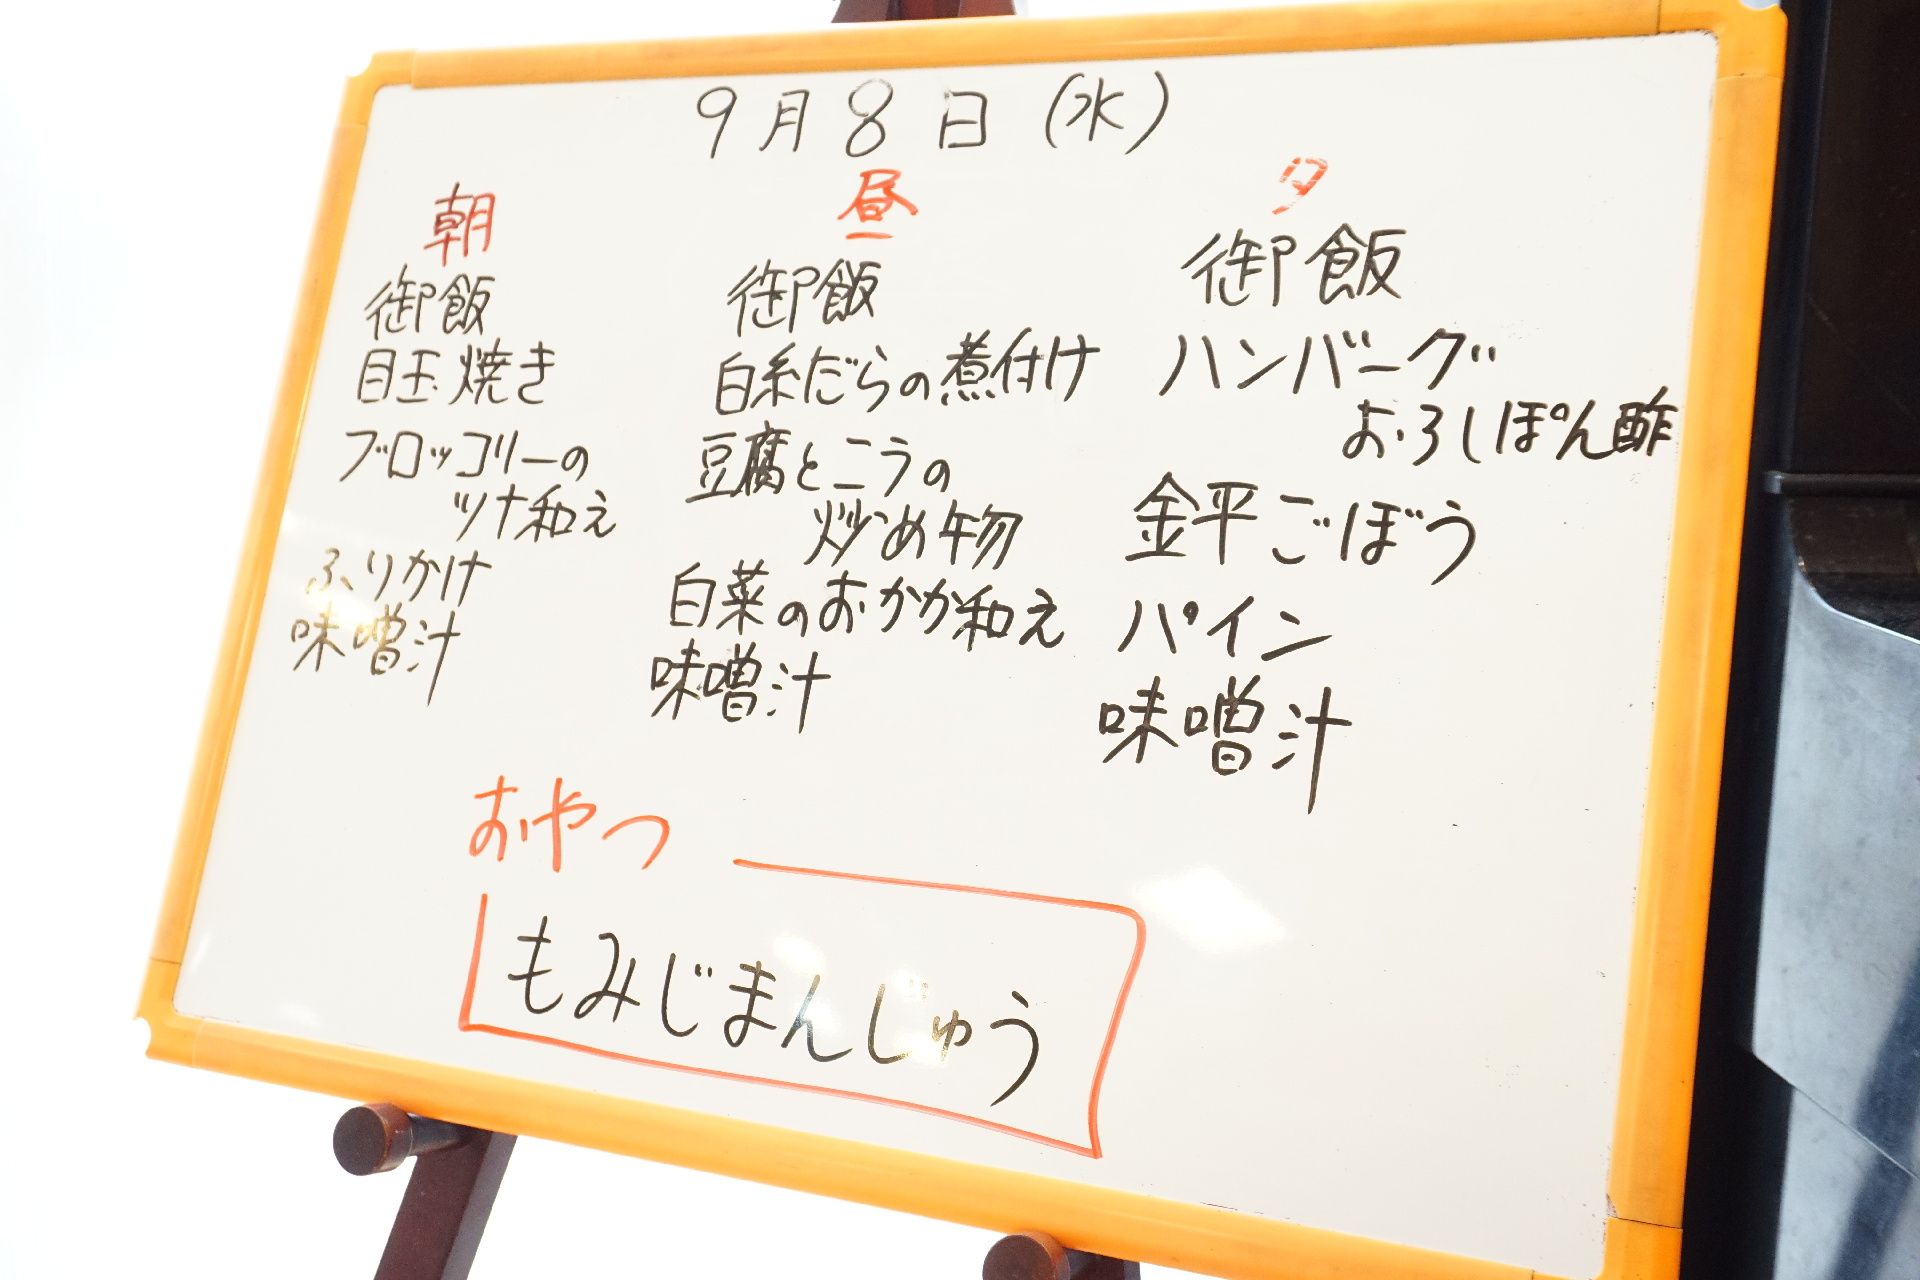 9月8日(水)
朝
御飯
目玉焼き
ブロッコリーの
ツナ和え
ふりかけ
味噌汁
昼
御飯
白糸だらの煮付け
豆腐とニラの
炒め物
白菜のおかか和え
味噌汁
夕
御飯
ハンバーグ
おろしぽん酢
金平ごぼう
パイン
味噌汁
おやつ
もみじまんじゅう